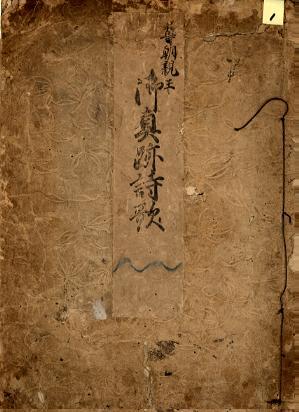 尊朝親王
御真跡詩歌
1